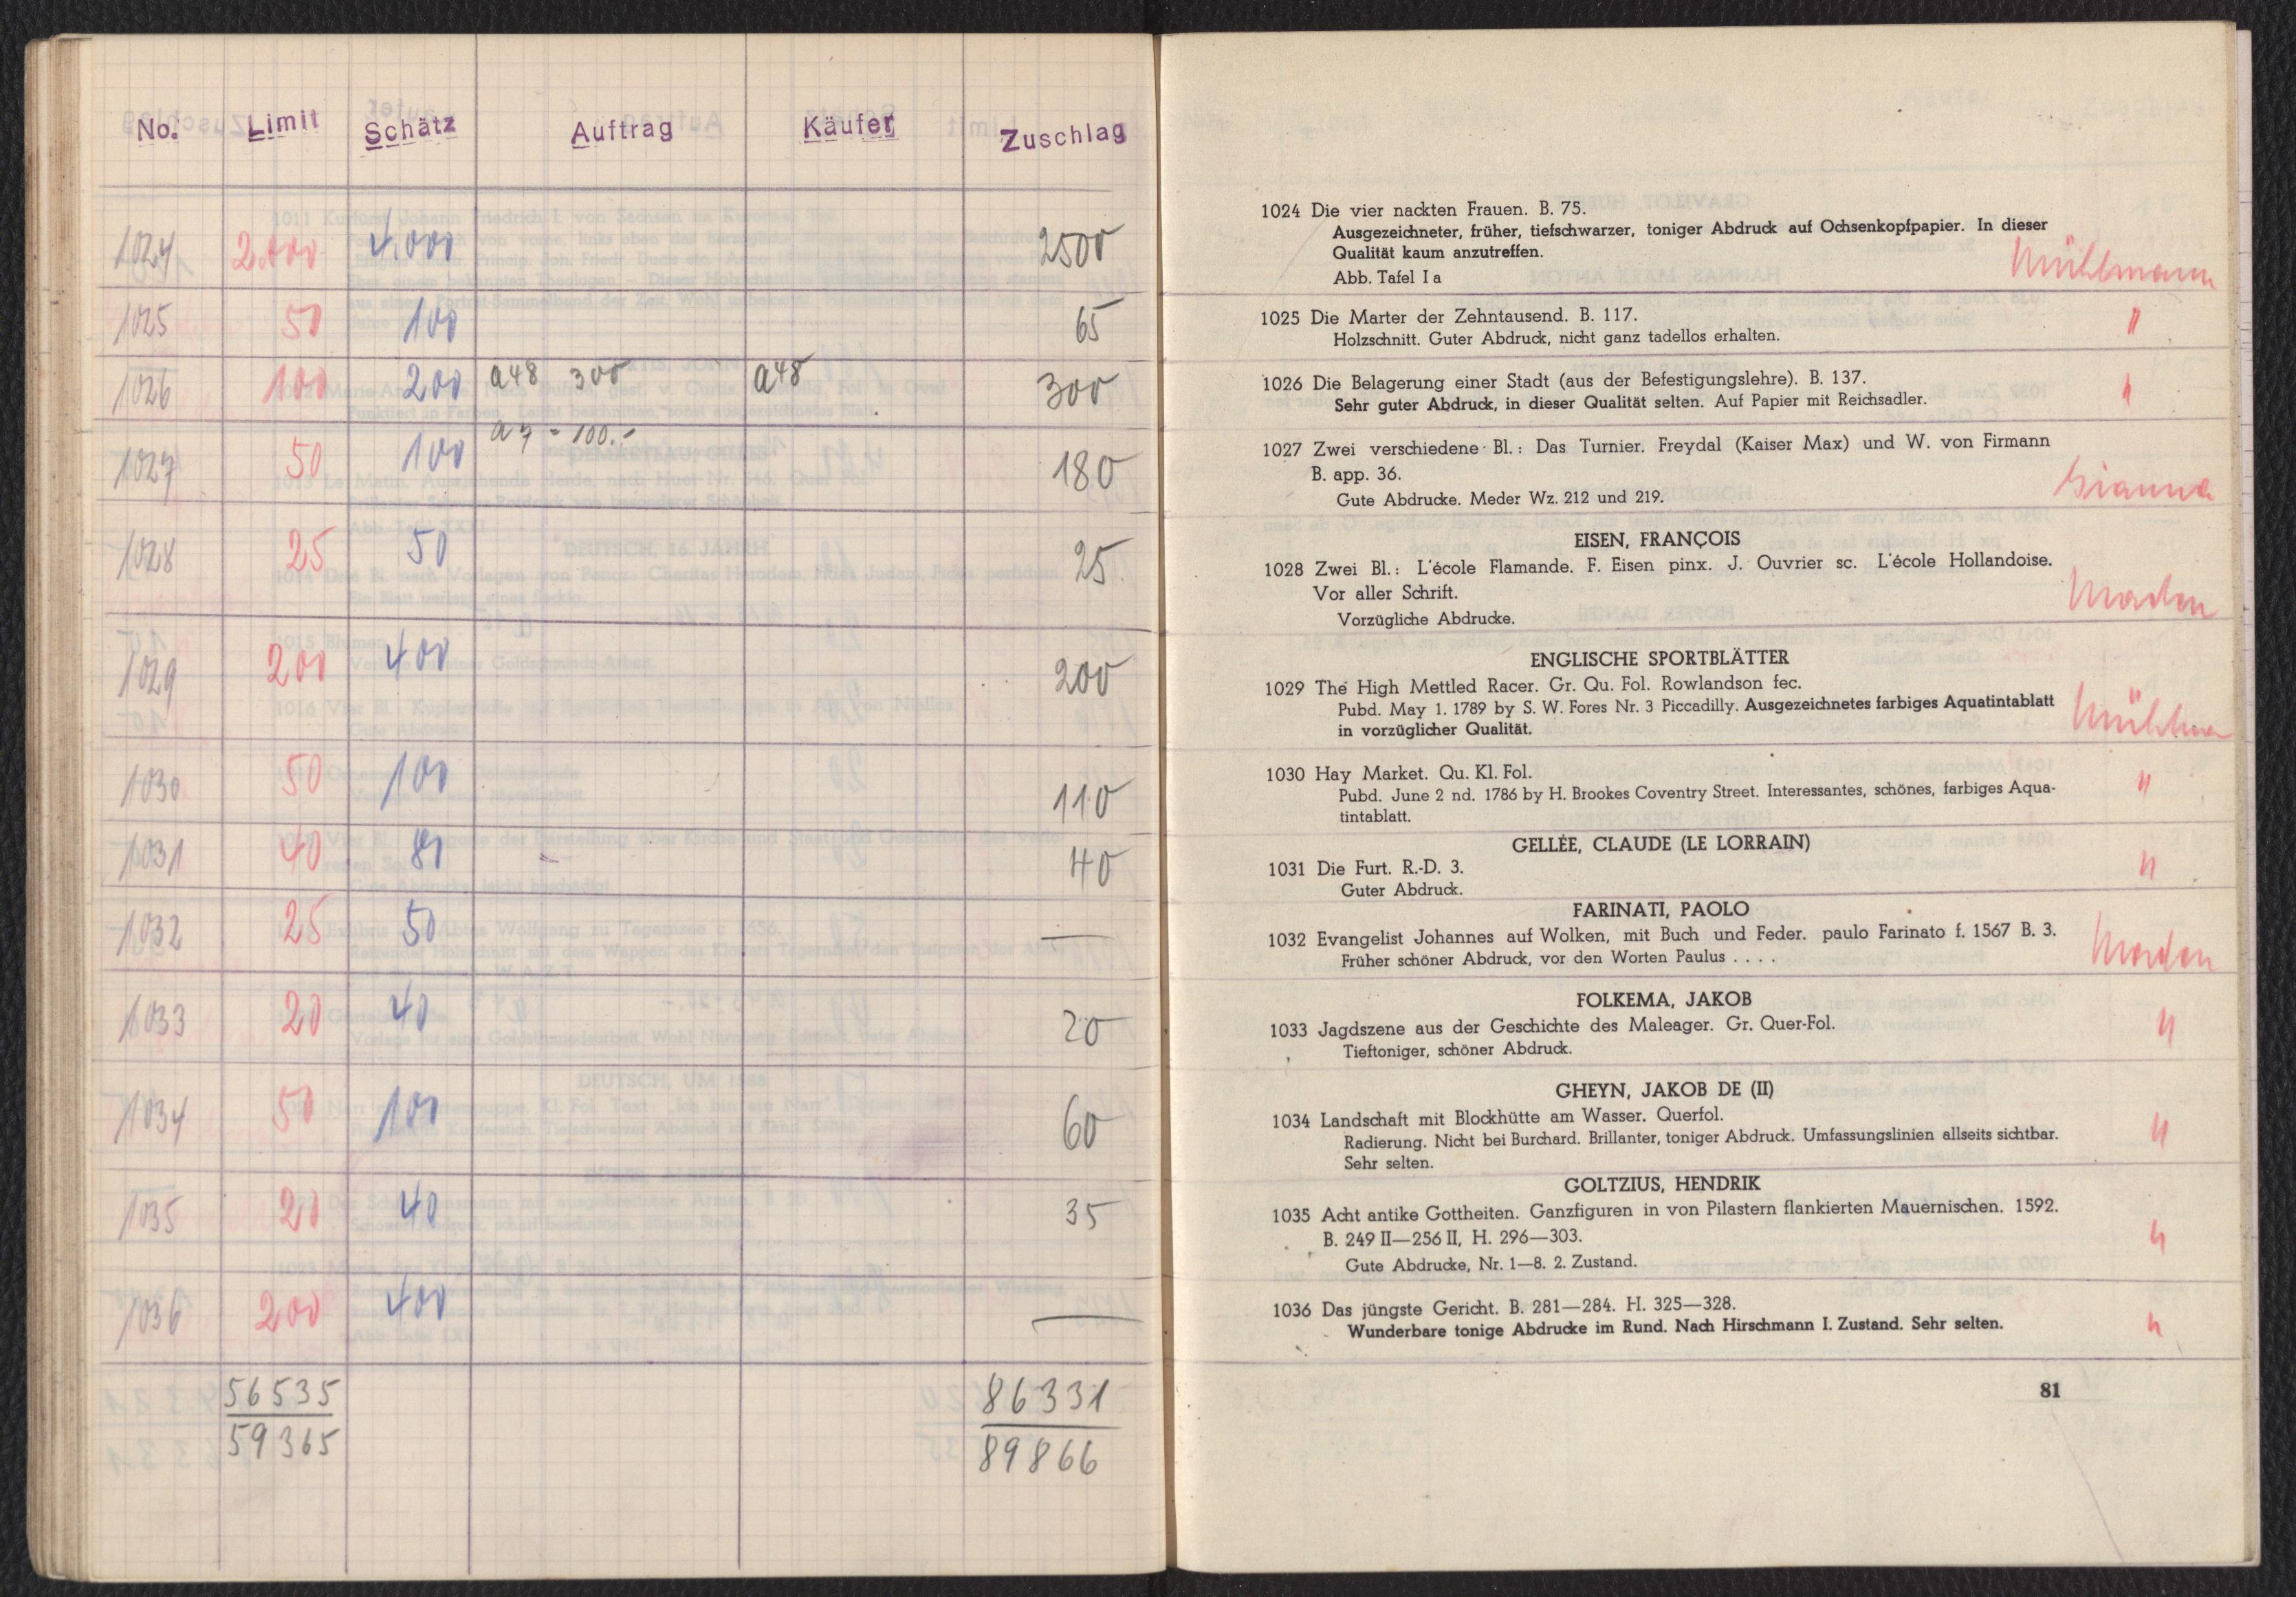 No. Limit Schätz Auftrag Käufer Zuschlag
1024 2.000 4.000 2500
1025 50 100 65
1026 100 200 a48 300 a48 300
1027 50 100 a7 = 100.- 180
1028 25 50 25
1029 200 400 200
1030 50 100 110
1031 40 80 40
1032 25 50 —
1033 20 40 20
1034 50 100 60
1035 20 40 35
1036 200 400 —
56535 86331
59365 89866
1024 Die vier nackten Frauen. B. 75.
Ausgezeichneter, früher, tiefschwarzer, toniger Abdruck auf Ochsenkopfpapier. In dieser
Qualität kaum anzutreffen.
Abb. Tafel I a
Mühlmann
1025 Die Marter der Zehntausend. B. 117.
Holzschnitt. Guter Abdruck, nicht ganz tadellos erhalten.
"
1026 Die Belagerung einer Stadt (aus der Befestigungslehre). B. 137.
Sehr guter Abdruck, in dieser Qualität selten. Auf Papier mit Reichsadler.
"
1027 Zwei verschiedene Bl.: Das Turnier. Freydal (Kaiser Max) und W. von Firmann
B. app. 36.
Gute Abdrucke. Meder Wz. 212 und 219.
EISEN, FRANÇOIS
1028 Zwei Bl.: L'école Flamande. F. Eisen pinx. J. Ouvrier sc. L'école Hollandoise.
Vor aller Schrift.
Vorzügliche Abdrucke.
ENGLISCHE SPORTBLÄTTER
1029 The High Mettled Racer. Gr. Qu. Fol. Rowlandson fec.
Pubd. May 1. 1789 by S. W. Fores Nr. 3 Piccadilly. Ausgezeichnetes farbiges Aquatintablatt
in vorzüglicher Qualität.
1030 Hay Market. Qu. Kl. Fol.
Pubd. June 2 nd. 1786 by H. Brookes Coventry Street. Interessantes, schönes, farbiges Aqua-
tintablatt.
"
GELLÉE, CLAUDE (LE LORRAIN)
1031 Die Furt. R.-D. 3.
Guter Abdruck.
"
FARINATI, PAOLO
1032 Evangelist Johannes auf Wolken, mit Buch und Feder. paulo Farinato f. 1567 B. 3.
Früher schöner Abdruck, vor den Worten Paulus . . . .
FOLKEMA, JAKOB
1033 Jagdszene aus der Geschichte des Maleager. Gr. Quer-Fol.
Tieftoniger, schöner Abdruck.
"
GHEYN, JAKOB DE (II)
1034 Landschaft mit Blockhütte am Wasser. Querfol.
Radierung. Nicht bei Burchard. Brillanter, toniger Abdruck. Umfassungslinien allseits sichtbar.
Sehr selten.
"
GOLTZIUS, HENDRIK
1035 Acht antike Gottheiten. Ganzfiguren in von Pilastern flankierten Mauernischen. 1592.
B. 249 II—256 II, H. 296—303.
Gute Abdrucke, Nr. 1—8. 2. Zustand.
"
1036 Das jüngste Gericht. B. 281—284. H. 325—328.
Wunderbare tonige Abdrucke im Rund. Nach Hirschmann I. Zustand. Sehr selten.
"
81